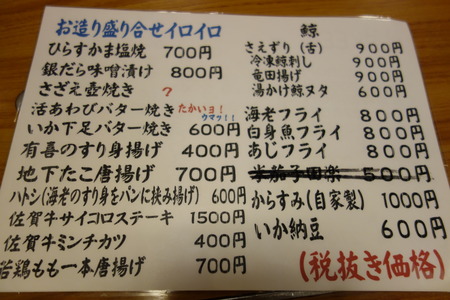 お造り盛り合せイロイロ
ひらすかま塩焼 700円
銀だら味噌漬け 800円
さざえ壺焼き ?
活あわびバター焼き たかいョ! ウマッ!!
いか下足バター焼き 600円
有喜のすり身揚げ 400円
地下たこ唐揚げ 700円
ハトシ(海老のすり身をパンに挟み揚げ) 600円
佐賀牛サイコロステーキ 1500円
佐賀牛ミンチカツ 400円
若鶏もも一本唐揚げ 700円
鯨
さえずり(舌) 900円
冷凍鯨刺し 900円
竜田揚げ 900円
湯かけ鯨ヌタ 600円
海老フライ 800円
白身魚フライ 800円
あじフライ 800円
米茄子田楽 500円
からすみ(自家製) 1000円
いか納豆 600円
(税抜き価格)